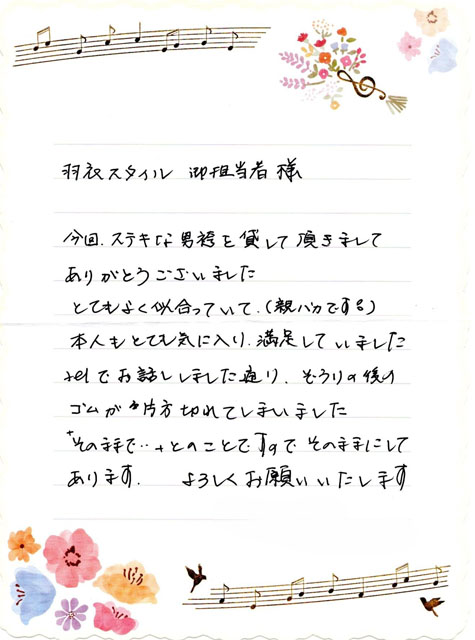 羽衣スタイル 御担当者 様
今回、ステキな男袴を貸して頂きまして
ありがとうございました
とてもよく似合っていて、(親バカですね)
本人もとても気に入り、満足していました
telでお話ししました通り、ぞうりの後の
ゴムが片方切れてしまいました
"そのままで‥"とのことですので そのままにして
あります. よろしくお願いいたします